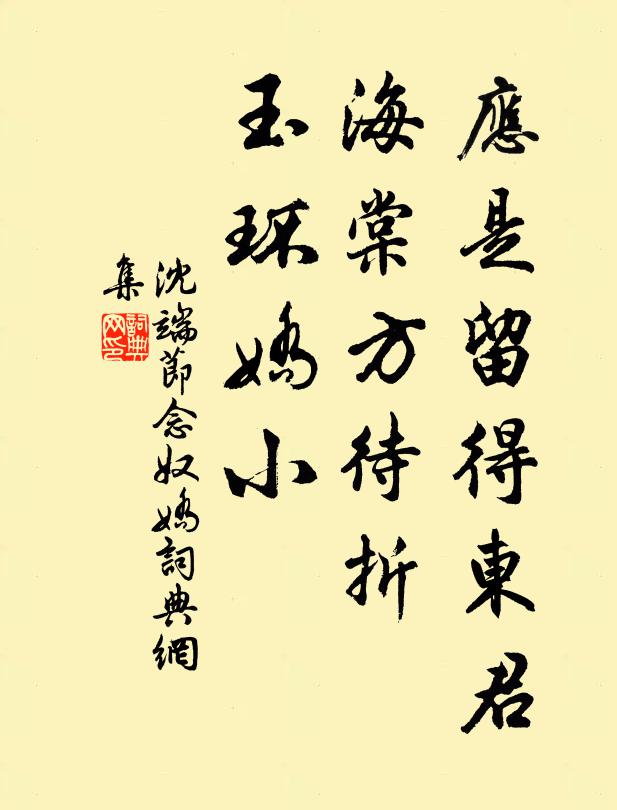 應是留得東君
海棠方待折
玉環嬌小
沈端節念奴嬌詞典網
集
詞典
网印